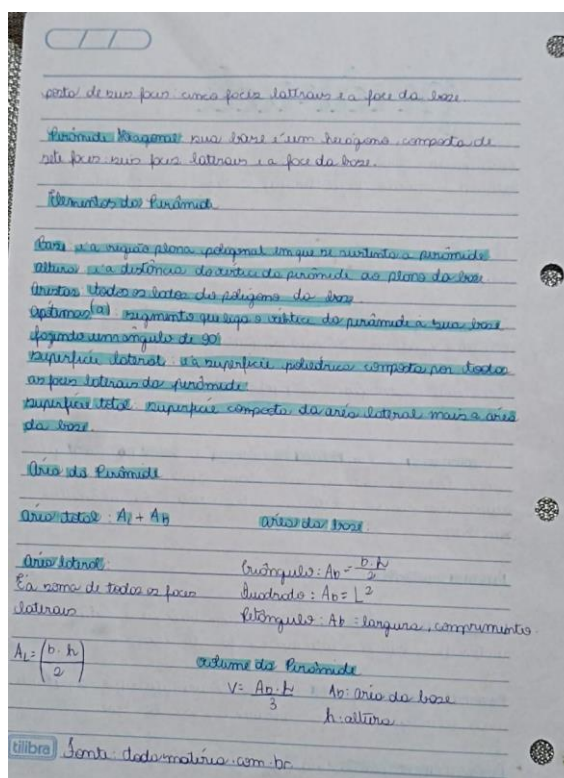 posta de suas faces cinco faces laterais e a face da base.
Pirâmide Hexagonal sua base é um hexágono, composta de
sete faces: seis faces laterais e a face da base.
Elementos da Pirâmide
Base: é a região plana poligonal em que se sustenta a pirâmide
altura: é a distância do vértice da pirâmide ao plano da base
Arestas: todos os lados do polígono da base
Apótemas(a): segmento que liga o vértice da pirâmide à sua base
fazendo um ângulo de 90°
superfície lateral: é a superfície poliédrica composta por todas
as faces laterais da pirâmide
superfície total: superfície composta da área lateral mais a área
da base.
Área da Pirâmide
área total: Al + Ab
área da base:
Área lateral:
É a soma de todas as faces
laterais
AL = (b . h / 2)
Triângulo: Ab = b . h / 2
Quadrado: Ab = L²
Retângulo: Ab = largura . comprimento.
volume da Pirâmide
V = Ab . h / 3
Ab: área da base
h: altura
tilibra
Fonte: todamatéria.com.br